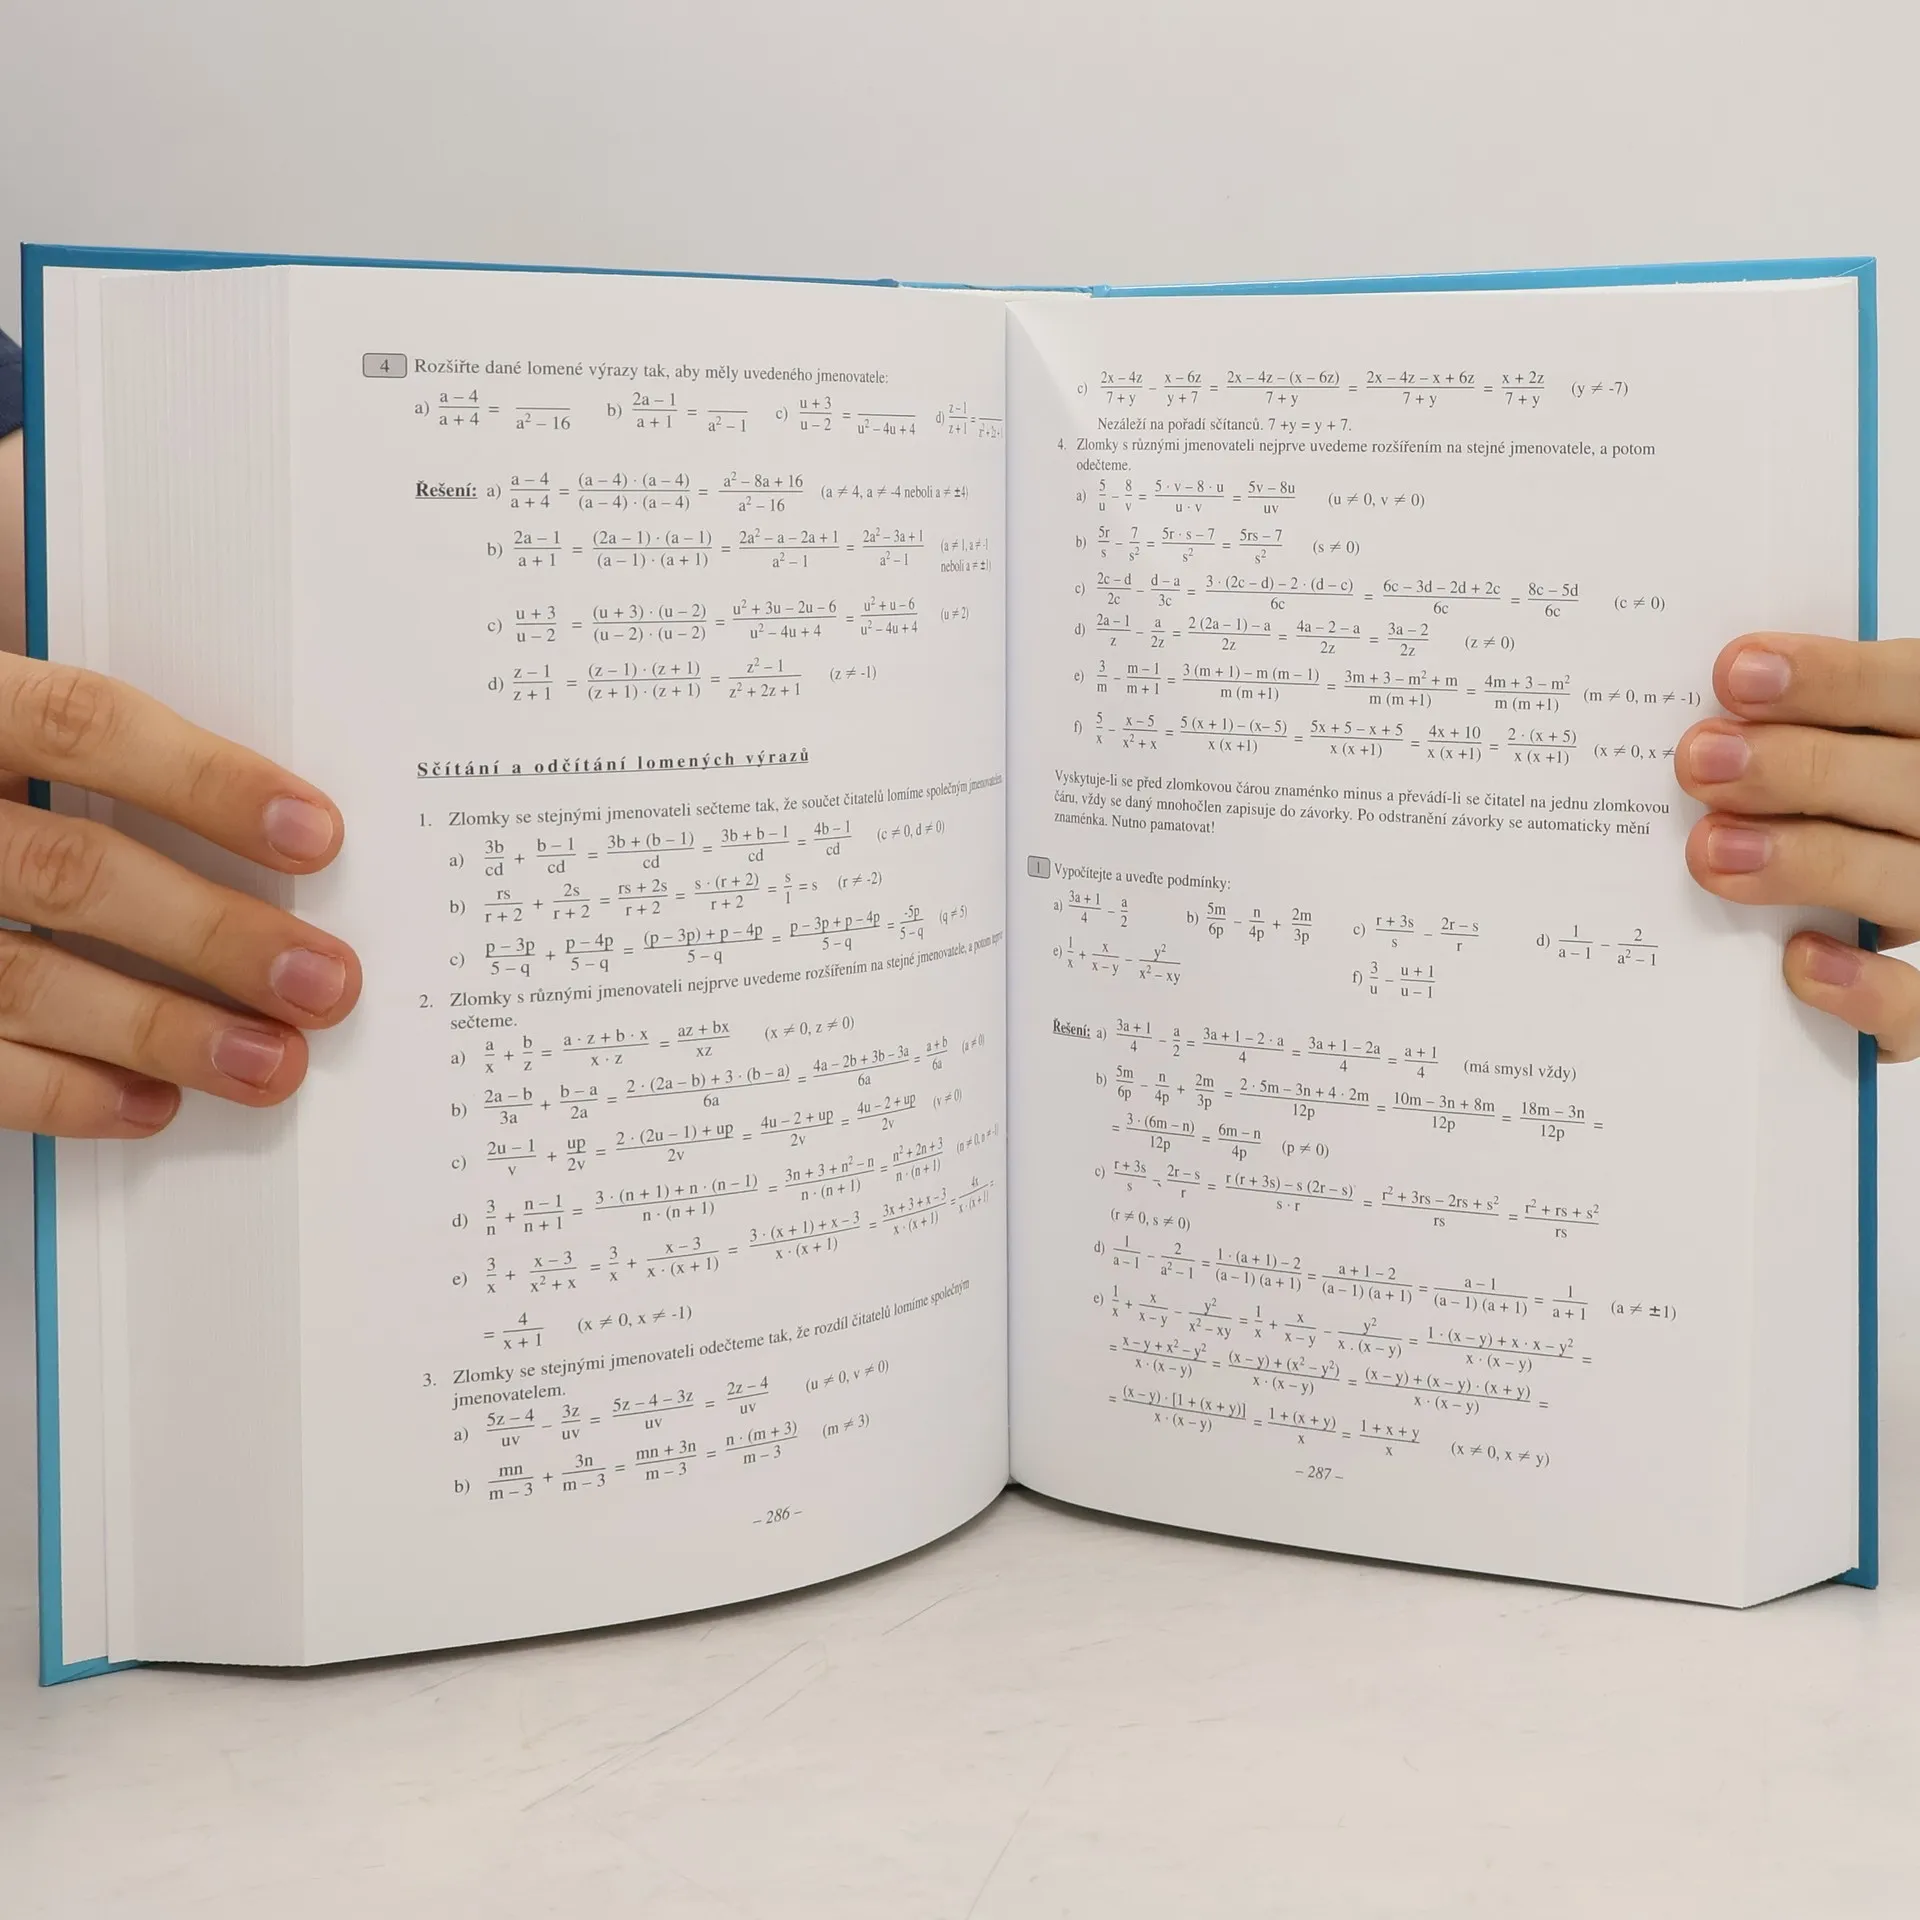 4 Rozšiřte dané lomené výrazy tak, aby měly uvedeného jmenovatele:
a) (a – 4)/(a + 4) = /(a² – 16) b) (2a – 1)/(a + 1) = /(a² – 1) c) (u + 3)/(u – 2) = /(u² – 4u + 4) d) (z – 1)/(z + 1) = /(z² + 2z + 1)
Řešení: a) (a – 4)/(a + 4) = ((a – 4) · (a – 4))/((a – 4) · (a – 4)) = (a² – 8a + 16)/(a² – 16) (a ≠ 4, a ≠ -4 neboli a ≠ ±4)
b) (2a – 1)/(a + 1) = ((2a – 1) · (a – 1))/((a – 1) · (a + 1)) = (2a² – a – 2a + 1)/(a² – 1) = (2a² – 3a + 1)/(a² – 1) (a ≠ 1, a ≠ -1
neboli a ≠ ±1)
c) (u + 3)/(u – 2) = ((u + 3) · (u – 2))/((u – 2) · (u – 2)) = (u² + 3u – 2u – 6)/(u² – 4u + 4) = (u² + u – 6)/(u² – 4u + 4) (u ≠ 2)
d) (z – 1)/(z + 1) = ((z – 1) · (z + 1))/((z + 1) · (z + 1)) = (z² – 1)/(z² + 2z + 1) (z ≠ -1)
Sčítání a odčítání lomených výrazů
1. Zlomky se stejnými jmenovateli sečteme tak, že součet čitatelů lomíme společným jmenovatelem.
a) 3b/cd + (b – 1)/cd = (3b + (b – 1))/cd = (3b + b – 1)/cd = (4b – 1)/cd (c ≠ 0, d ≠ 0)
b) rs/(r + 2) + 2s/(r + 2) = (rs + 2s)/(r + 2) = (s · (r + 2))/(r + 2) = s/1 = s (r ≠ -2)
c) (p – 3p)/(5 – q) + (p – 4p)/(5 – q) = ((p – 3p) + p – 4p)/(5 – q) = (p – 3p + p – 4p)/(5 – q) = -5p/(5 – q) (q ≠ 5)
2. Zlomky s různými jmenovateli nejprve uvedeme rozšířením na stejné jmenovatele, a potom teprve
sečteme.
a) a/x + b/z = (a · z + b · x)/(x · z) = (az + bx)/xz (x ≠ 0, z ≠ 0)
b) (2a – b)/3a + (b – a)/2a = (2 · (2a – b) + 3 · (b – a))/6a = (4a – 2b + 3b – 3a)/6a = (a + b)/6a (a ≠ 0)
c) (2u – 1)/v + up/2v = (2 · (2u – 1) + up)/2v = (4u – 2 + up)/2v = (4u – 2 + up)/2v (v ≠ 0)
d) 3/n + (n – 1)/(n + 1) = (3 · (n + 1) + n · (n – 1))/(n · (n + 1)) = (3n + 3 + n² – n)/(n · (n + 1)) = (n² + 2n + 3)/(n · (n + 1)) (n ≠ 0, n ≠ -1)
e) 3/x + (x – 3)/(x² + x) = 3/x + (x – 3)/(x · (x + 1)) = (3 · (x + 1) + x – 3)/(x · (x + 1)) = (3x + 3 + x – 3)/(x · (x + 1)) = 4x/(x · (x + 1)) =
= 4/(x + 1) (x ≠ 0, x ≠ -1)
3. Zlomky se stejnými jmenovateli odečteme tak, že rozdíl čitatelů lomíme společným
jmenovatelem.
a) (5z – 4)/uv – 3z/uv = (5z – 4 – 3z)/uv = (2z – 4)/uv (u ≠ 0, v ≠ 0)
b) mn/(m – 3) + 3n/(m – 3) = (mn + 3n)/(m – 3) = (n · (m + 3))/(m – 3) (m ≠ 3)
– 286 –
c) (2x – 4z)/(7 + y) – (x – 6z)/(y + 7) = (2x – 4z – (x – 6z))/(7 + y) = (2x – 4z – x + 6z)/(7 + y) = (x + 2z)/(7 + y) (y ≠ -7)
Nezáleží na pořadí sčítanců. 7 +y = y + 7.
4. Zlomky s různými jmenovateli nejprve uvedeme rozšířením na stejné jmenovatele, a potom
odečteme.
a) 5/u – 8/v = (5 · v – 8 · u)/(u · v) = (5v – 8u)/uv (u ≠ 0, v ≠ 0)
b) 5r/s – 7/s² = (5r · s – 7)/s² = (5rs – 7)/s² (s ≠ 0)
c) (2c – d)/2c – (d – a)/3c = (3 · (2c – d) – 2 · (d – c))/6c = (6c – 3d – 2d + 2c)/6c = (8c – 5d)/6c (c ≠ 0)
d) (2a – 1)/z – a/2z = (2 (2a – 1) – a)/2z = (4a – 2 – a)/2z = (3a – 2)/2z (z ≠ 0)
e) 3/m – (m – 1)/(m + 1) = (3 (m + 1) – m (m – 1))/(m (m +1)) = (3m + 3 – m² + m)/(m (m +1)) = (4m + 3 – m²)/(m (m +1)) (m ≠ 0, m ≠ -1)
f) 5/x – (x – 5)/(x² + x) = (5 (x + 1) – (x– 5))/(x (x +1)) = (5x + 5 – x + 5)/(x (x +1)) = (4x + 10)/(x (x +1)) = (2 · (x + 5))/(x (x +1)) (x ≠ 0, x ≠
Vyskytuje-li se před zlomkovou čárou znaménko minus a převádí-li se čitatel na jednu zlomkovou
čáru, vždy se daný mnohočlen zapisuje do závorky. Po odstranění závorky se automaticky mění
znaménka. Nutno pamatovat!
1 Vypočítejte a uveďte podmínky:
a) (3a + 1)/4 – a/2 b) 5m/6p – n/4p + 2m/3p c) (r + 3s)/s – (2r – s)/r d) 1/(a – 1) – 2/(a² – 1)
e) 1/x + x/(x – y) – y²/(x² – xy) f) 3/u – (u + 1)/(u – 1)
Řešení: a) (3a + 1)/4 – a/2 = (3a + 1 – 2 · a)/4 = (3a + 1 – 2a)/4 = (a + 1)/4 (má smysl vždy)
b) 5m/6p – n/4p + 2m/3p = (2 · 5m – 3n + 4 · 2m)/12p = (10m – 3n + 8m)/12p = (18m – 3n)/12p =
= (3 · (6m – n))/12p = (6m – n)/4p (p ≠ 0)
c) (r + 3s)/s – (2r – s)/r = (r (r + 3s) – s (2r – s))/(s · r) = (r² + 3rs – 2rs + s²)/rs = (r² + rs + s²)/rs
(r ≠ 0, s ≠ 0)
d) 1/(a – 1) – 2/(a² – 1) = (1 · (a + 1) – 2)/((a – 1) (a + 1)) = (a + 1 – 2)/((a – 1) (a + 1)) = (a – 1)/((a – 1) (a + 1)) = 1/(a + 1) (a ≠ ±1)
e) 1/x + x/(x – y) – y²/(x² – xy) = 1/x + x/(x – y) – y²/(x . (x – y)) = (1 · (x – y) + x · x – y²)/(x · (x – y)) =
= (x – y + x² – y²)/(x · (x – y)) = ((x – y) + (x² – y²))/(x · (x – y)) = ((x – y) + (x – y) · (x + y))/(x · (x – y)) =
= ((x – y) · [1 + (x + y)])/(x · (x – y)) = (1 + (x + y))/x = (1 + x + y)/x (x ≠ 0, x ≠ y)
– 287 –